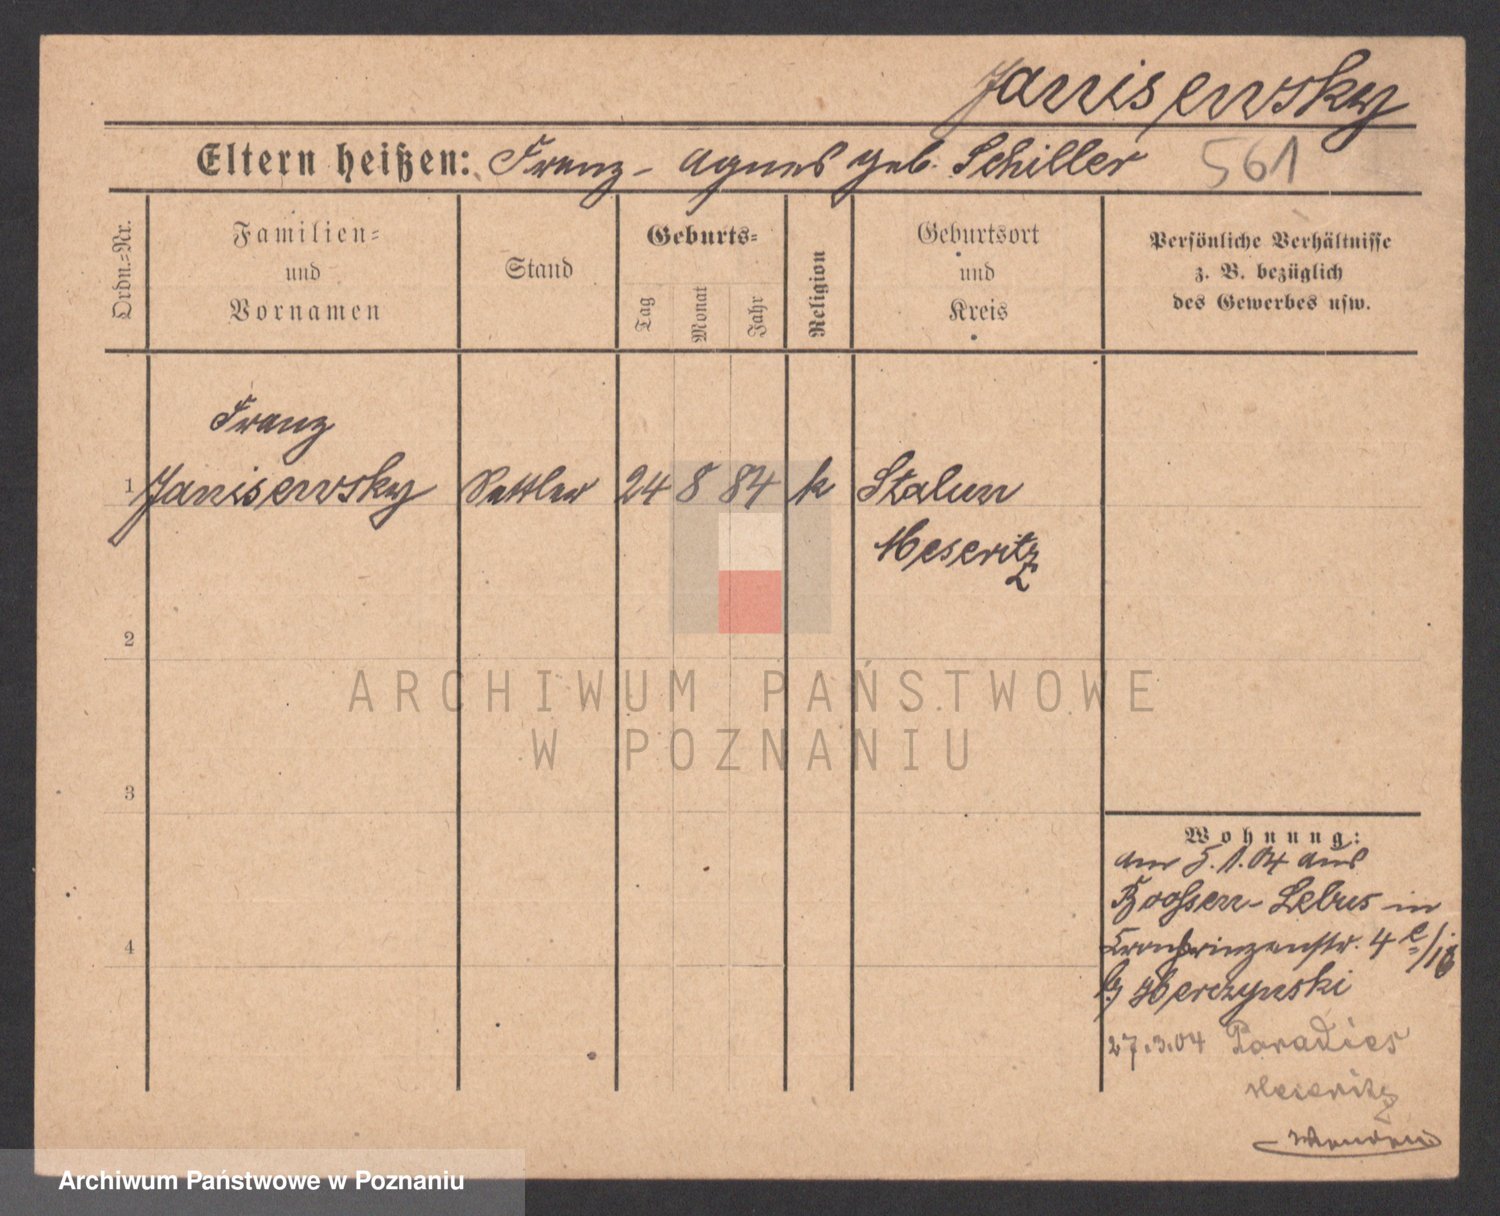 Janisewsky
Eltern heißen: Franz - Agnes geb. Schiller 561
Ordn.=Nr.
Familien=
und
Vornamen
Stand
Geburts=
Tag
Monat
Jahr
Religion
Geburtsort
und
Kreis
Persönliche Verhältnisse
z. B. bezüglich
des Gewerbes usw.
Franz
1 Janisewsky Sattler 24 8 84 k Stalun
Meseritz
2
3
4
Wohnung:
am 5.1.04 aus
Boossen - Lebus in
Kronprinzenstr. 4
Herczynski
27.3.04 Paradies
Meseritz
ARCHIWUM PAŃSTWOWE
W POZNANIU
Archiwum Państwowe w Poznaniu